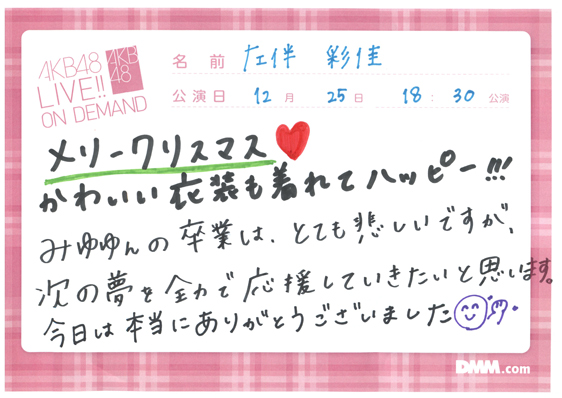 AKB48
LIVE!!
ON DEMAND
AKB
48
名前 左伴 彩佳
公演日 12月 25日 18:30公演
メリークリスマス
かわいい衣装も着れてハッピー!!!
みゆゆんの卒業は、とても悲しいですが、
次の夢を全力で応援していきたいと思います。
今日は本当にありがとうございました
DMM.com